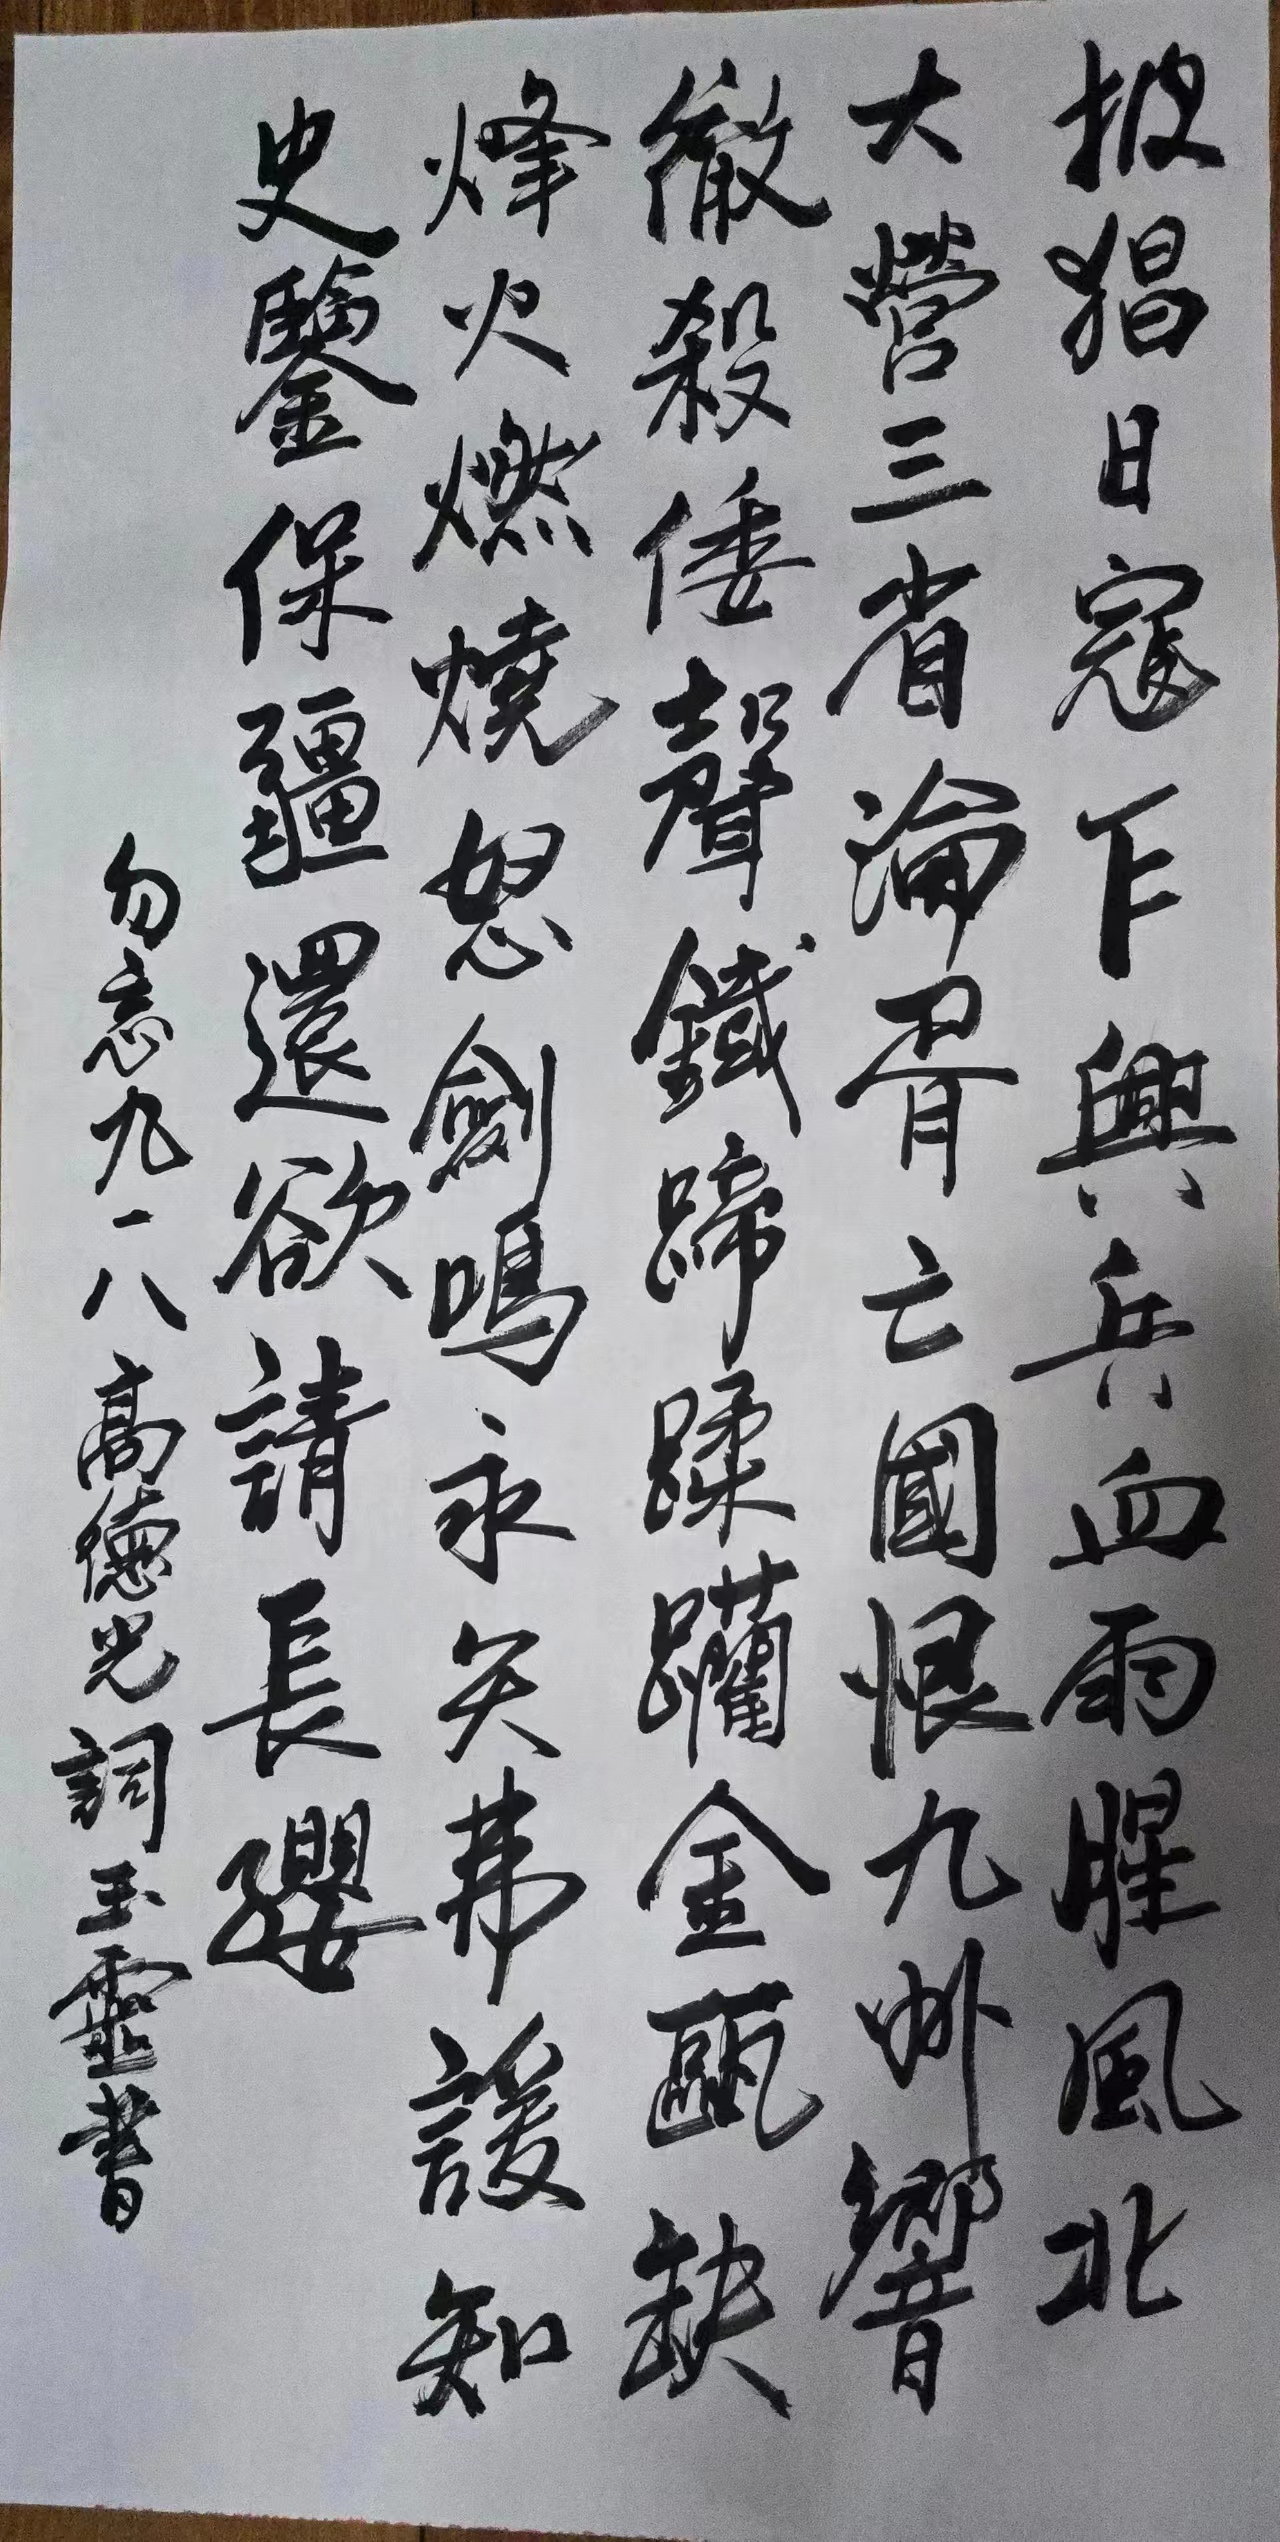 披猖日寇乍興兵血雨腥風北
大營三省淪胥亡國恨九州響
徹殺倭聲鐵蹄蹂躪金甌缺
烽火燃燒怒劍鳴永矢弗諼知
史鑒保疆還欲請長纓
勿忘九一八高德光詞玉靈書